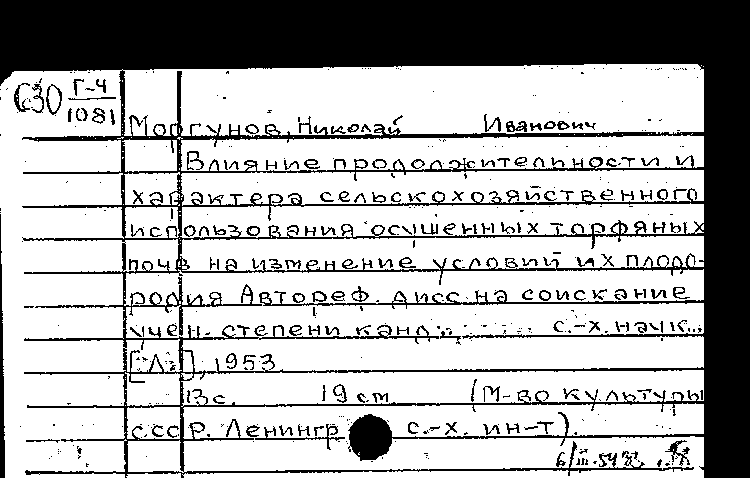 630 Г-4
1081
Моргунов, Николай Иванович
Влияние продолжительности и
характера сельскохозяйственного
использования осушенных торфяных
почв на изменение условий их плодо-
родия Автореф. дисс. на соискание
учен. степени канд. с.-х. наук.
[Л.], 1953.
13 с. 19 см. (М-во культуры
СССР. Ленингр с.-х. ин-т).
6/III-54